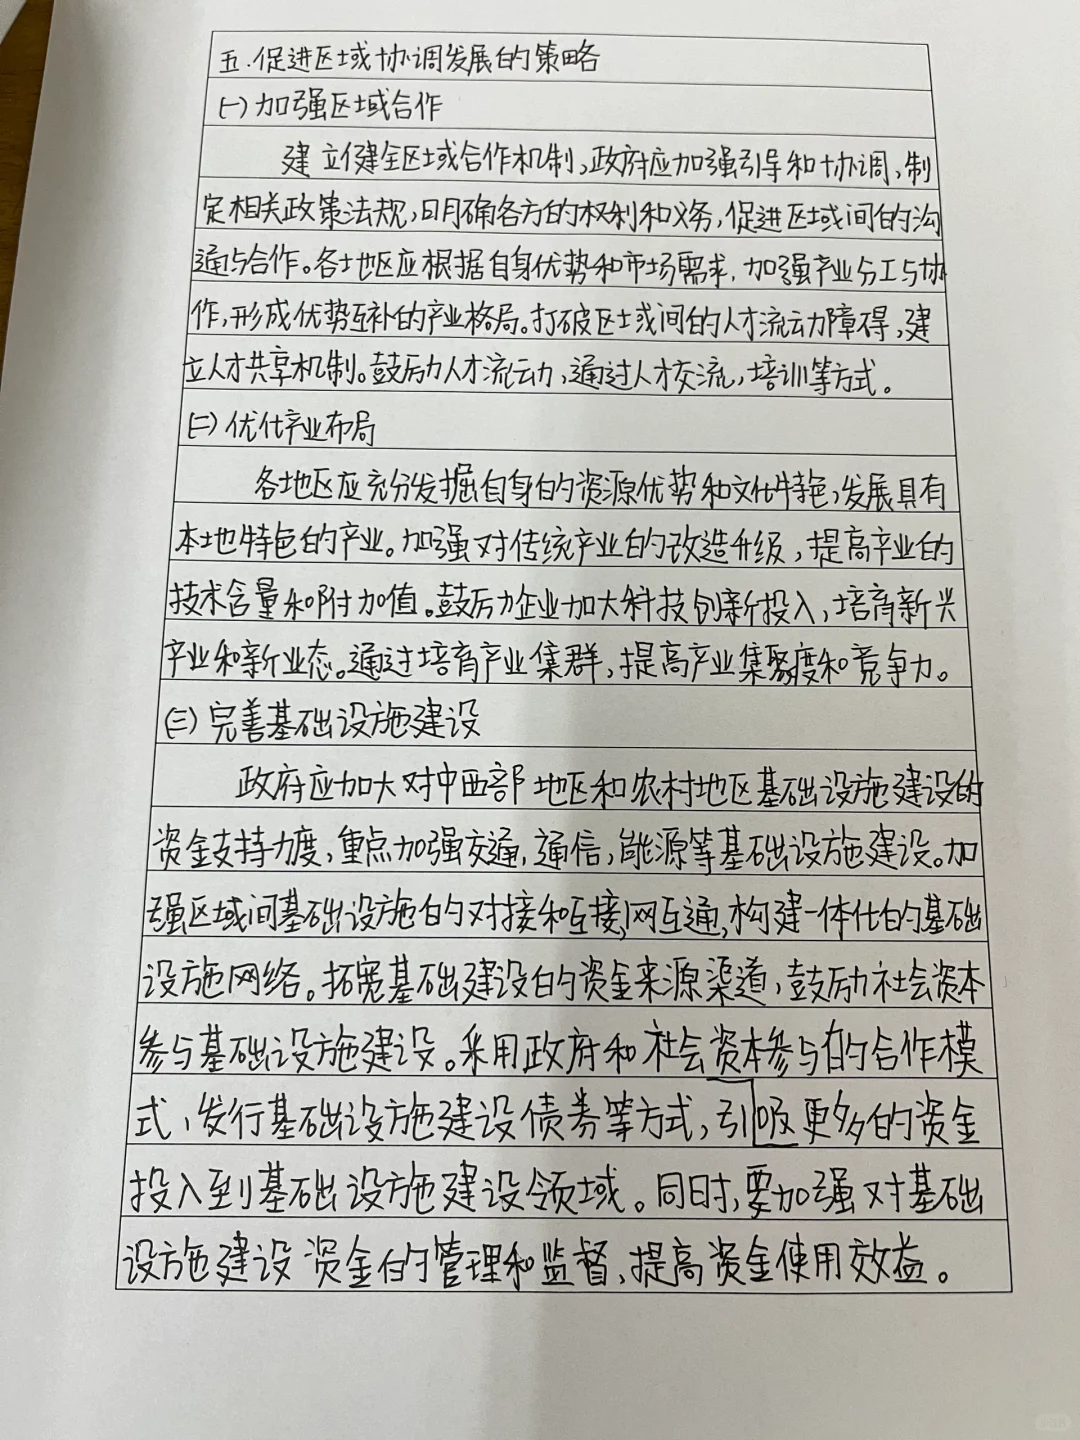 五.促进区域协调发展的策略
(一)加强区域合作
建立健全区域合作机制,政府应加强引导和协调,制
定相关政策法规,明确各方的权利和义务,促进区域间的沟
通与合作。各地区应根据自身优势和市场需求,加强产业分工与协
作,形成优势互补的产业格局。打破区域间的人才流动障碍,建
立人才共享机制。鼓励人才流动,通过人才交流,培训等方式。
(二)优化产业布局
各地区应充分发掘自身的资源优势和文化特色,发展具有
本地特色的产业。加强对传统产业的改造升级,提高产业的
技术含量和附加值。鼓励企业加大科技创新投入,培育新兴
产业和新业态。通过培育产业集群,提高产业集聚度和竞争力。
(三)完善基础设施建设
政府应加大对中西部地区和农村地区基础设施建设的
资金支持力度,重点加强交通,通信,能源等基础设施建设。加
强区域间基础设施的对接和互接,网互通,构建一体化的基础
设施网络。拓宽基础建设的资金来源渠道,鼓励社会资本
参与基础设施建设。采用政府和社会资本参与的合作模
式,发行基础设施建设债券等方式,引吸更多的资金
投入到基础设施建设领域。同时,要加强对基础
设施建设资金的管理和监督,提高资金使用效益。